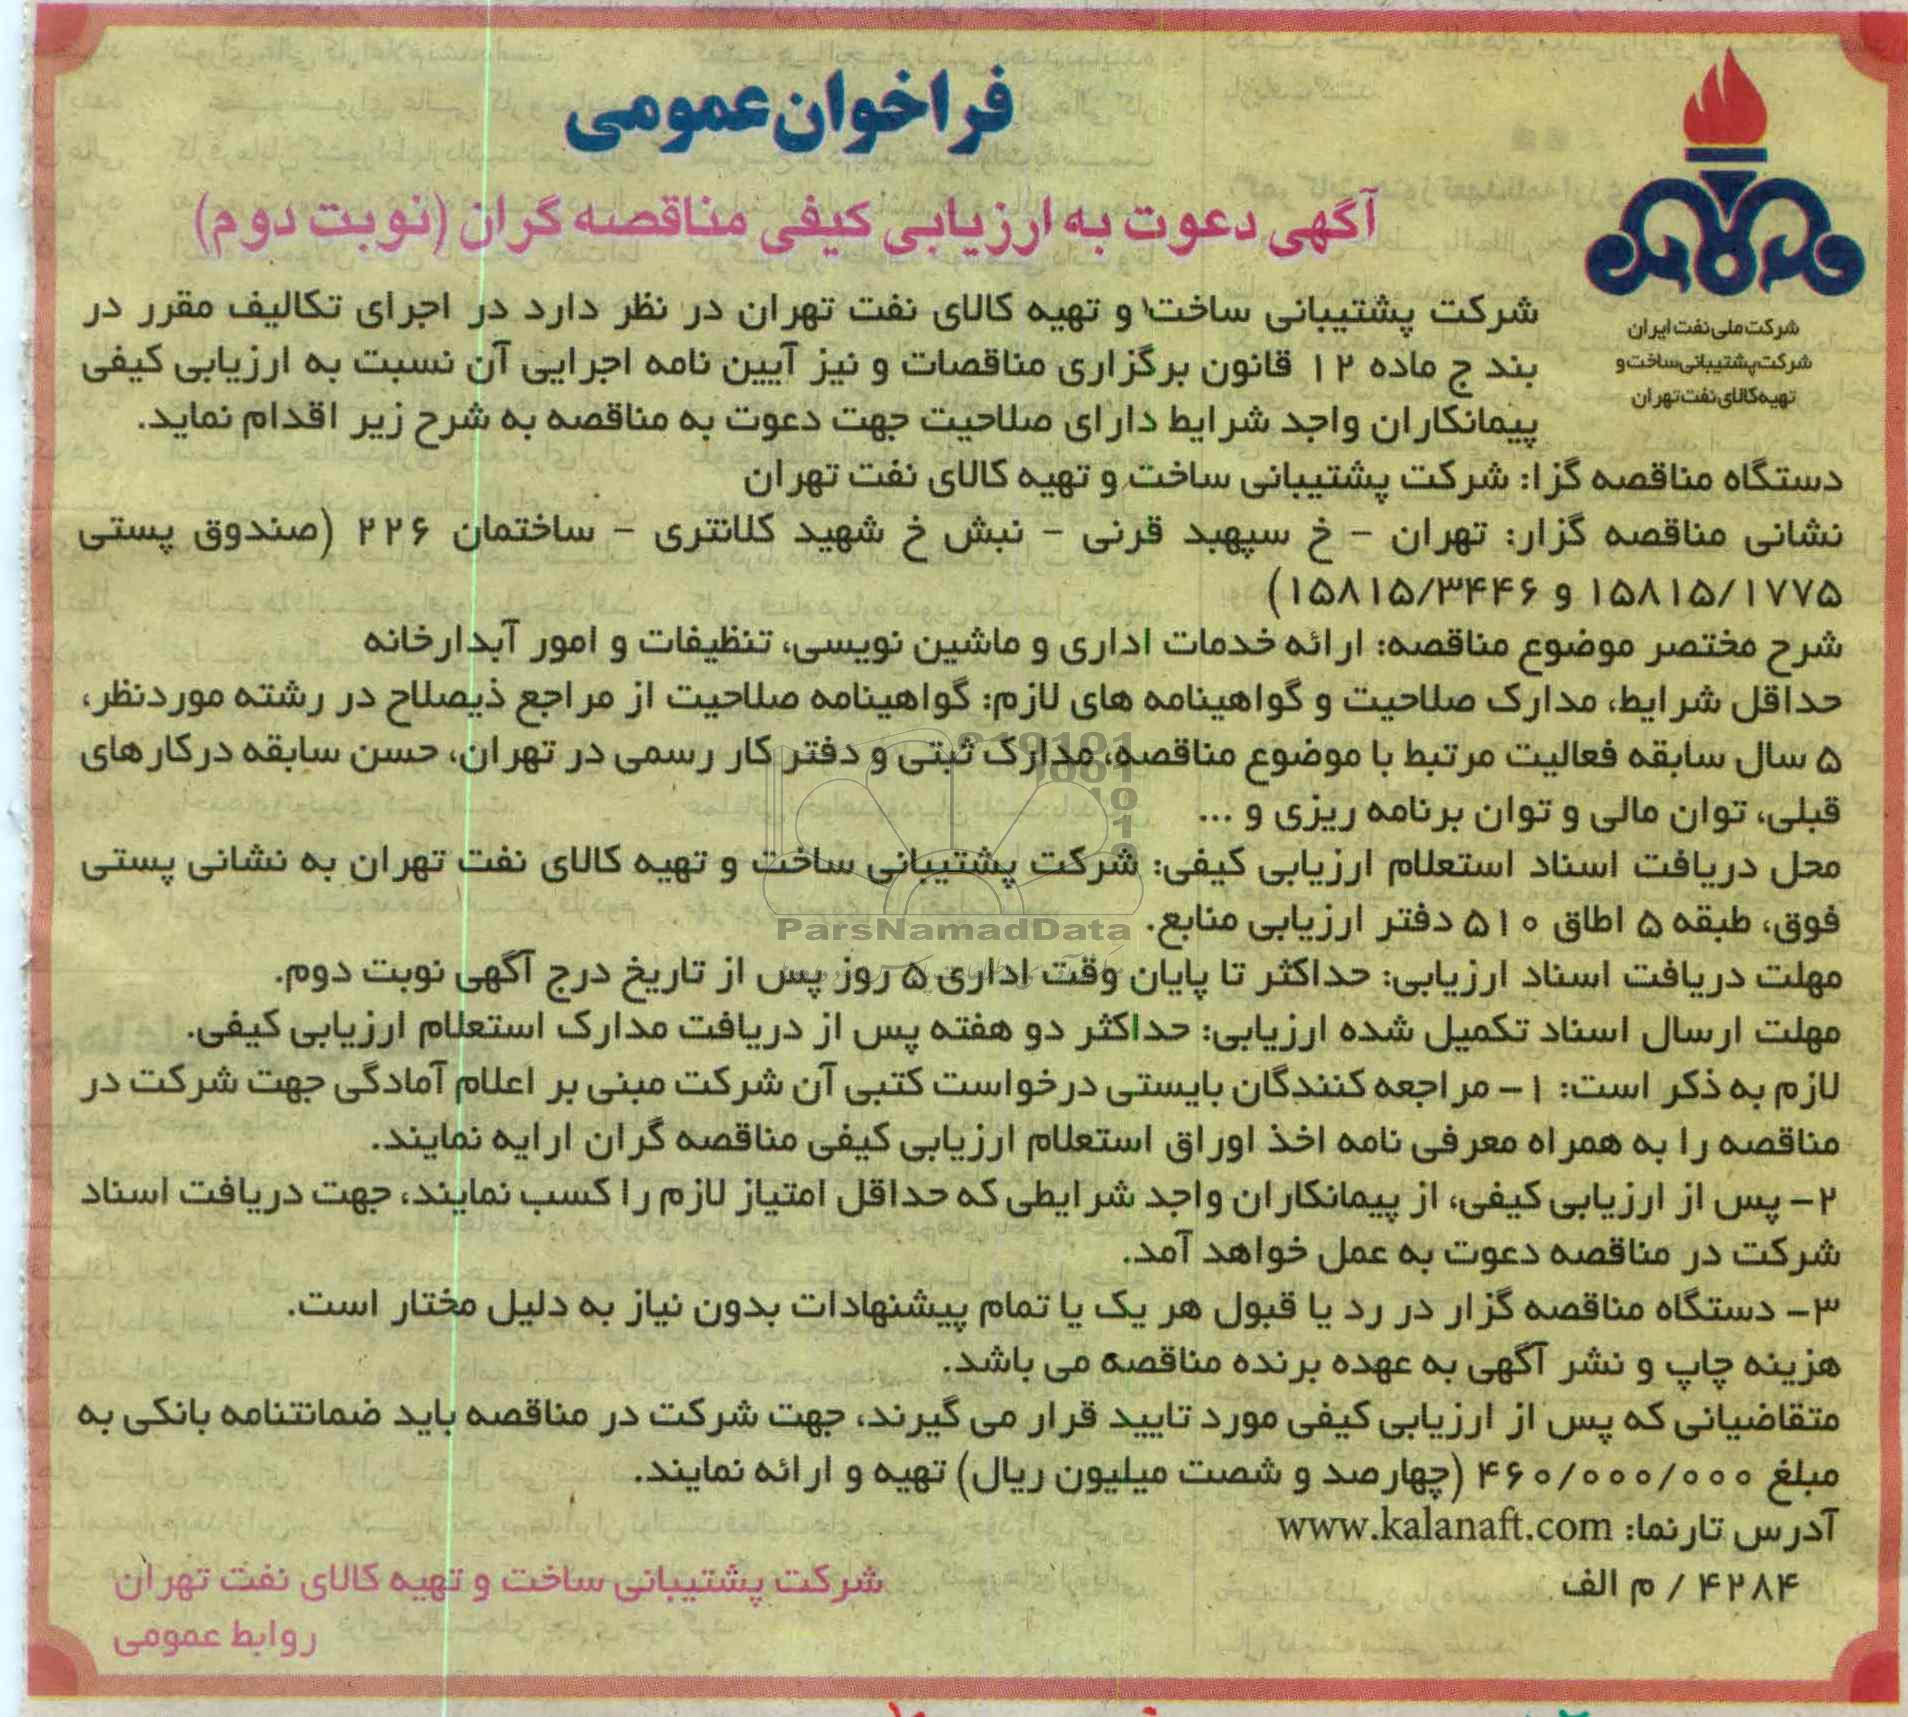 فراخوان عمومی
آگهی دعوت به ارزیابی کیفی مناقصه گران (نوبت دوم)
شرکت ملی نفت ایران
شرکت پشتیبانی ساخت و
تهیه کالای نفت تهران
شرکت پشتیبانی ساخت و تهیه کالای نفت تهران در نظر دارد در اجرای تکالیف مقرر در
بند ج ماده ۱۲ قانون برگزاری مناقصات و نیز آیین نامه اجرایی آن نسبت به ارزیابی کیفی
پیمانکاران واجد شرایط دارای صلاحیت جهت دعوت به مناقصه به شرح زیر اقدام نماید.
دستگاه مناقصه گزا: شرکت پشتیبانی ساخت و تهیه کالای نفت تهران
نشانی مناقصه گزار: تهران - خ سپهبد قرنی - نبش خ شهید کلانتری - ساختمان ۲۲۶ (صندوق پستی
۱۵۸۱۵/۱۷۷۵ و ۱۵۸۱۵/۳۴۴۶)
شرح مختصر موضوع مناقصه: ارائه خدمات اداری و ماشین نویسی، تنظیفات و امور آبدارخانه
حداقل شرایط، مدارک صلاحیت و گواهینامه های لازم: گواهینامه صلاحیت از مراجع ذیصلاح در رشته موردنظر،
۵ سال سابقه فعالیت مرتبط با موضوع مناقصه، مدارک ثبتی و دفتر کار رسمی در تهران، حسن سابقه درکارهای
قبلی، توان مالی و توان برنامه ریزی و ...
محل دریافت اسناد استعلام ارزیابی کیفی: شرکت پشتیبانی ساخت و تهیه کالای نفت تهران به نشانی پستی
فوق، طبقه ۵ اطاق ۵۱۰ دفتر ارزیابی منابع.
ParsNamadData
مهلت دریافت اسناد ارزیابی: حداکثر تا پایان وقت اداری ۵ روز پس از تاریخ درج آگهی نوبت دوم.
مهلت ارسال اسناد تکمیل شده ارزیابی: حداکثر دو هفته پس از دریافت مدارک استعلام ارزیابی کیفی.
لازم به ذکر است: ۱- مراجعه کنندگان بایستی درخواست کتبی آن شرکت مبنی بر اعلام آمادگی جهت شرکت در
مناقصه را به همراه معرفی نامه اخذ اوراق استعلام ارزیابی کیفی مناقصه گران ارایه نمایند.
۲- پس از ارزیابی کیفی، از پیمانکاران واجد شرایطی که حداقل امتیاز لازم را کسب نمایند، جهت دریافت اسناد
شرکت در مناقصه دعوت به عمل خواهد آمد.
۳- دستگاه مناقصه گزار در رد یا قبول هر یک یا تمام پیشنهادات بدون نیاز به دلیل مختار است.
هزینه چاپ و نشر آگهی به عهده برنده مناقصه می باشد.
متقاضیانی که پس از ارزیابی کیفی مورد تایید قرار می گیرند، جهت شرکت در مناقصه باید ضمانتنامه بانکی به
مبلغ ۴۶۰/۰۰۰/۰۰۰ (چهارصد و شصت میلیون ریال) تهیه و ارائه نمایند.
آدرس تارنما: www.kalanaft.com
۴۲۸۴ / م الف
شرکت پشتیبانی ساخت و تهیه کالای نفت تهران
روابط عمومی